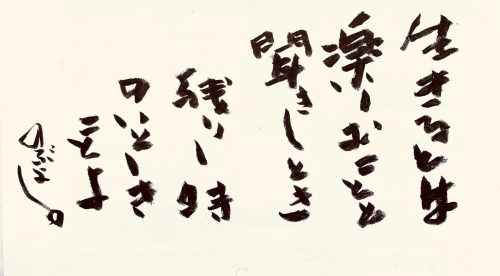 生きるとは
楽しむことと
聞きしとき
残りし時
のいとしき
ことよ
のぶよし